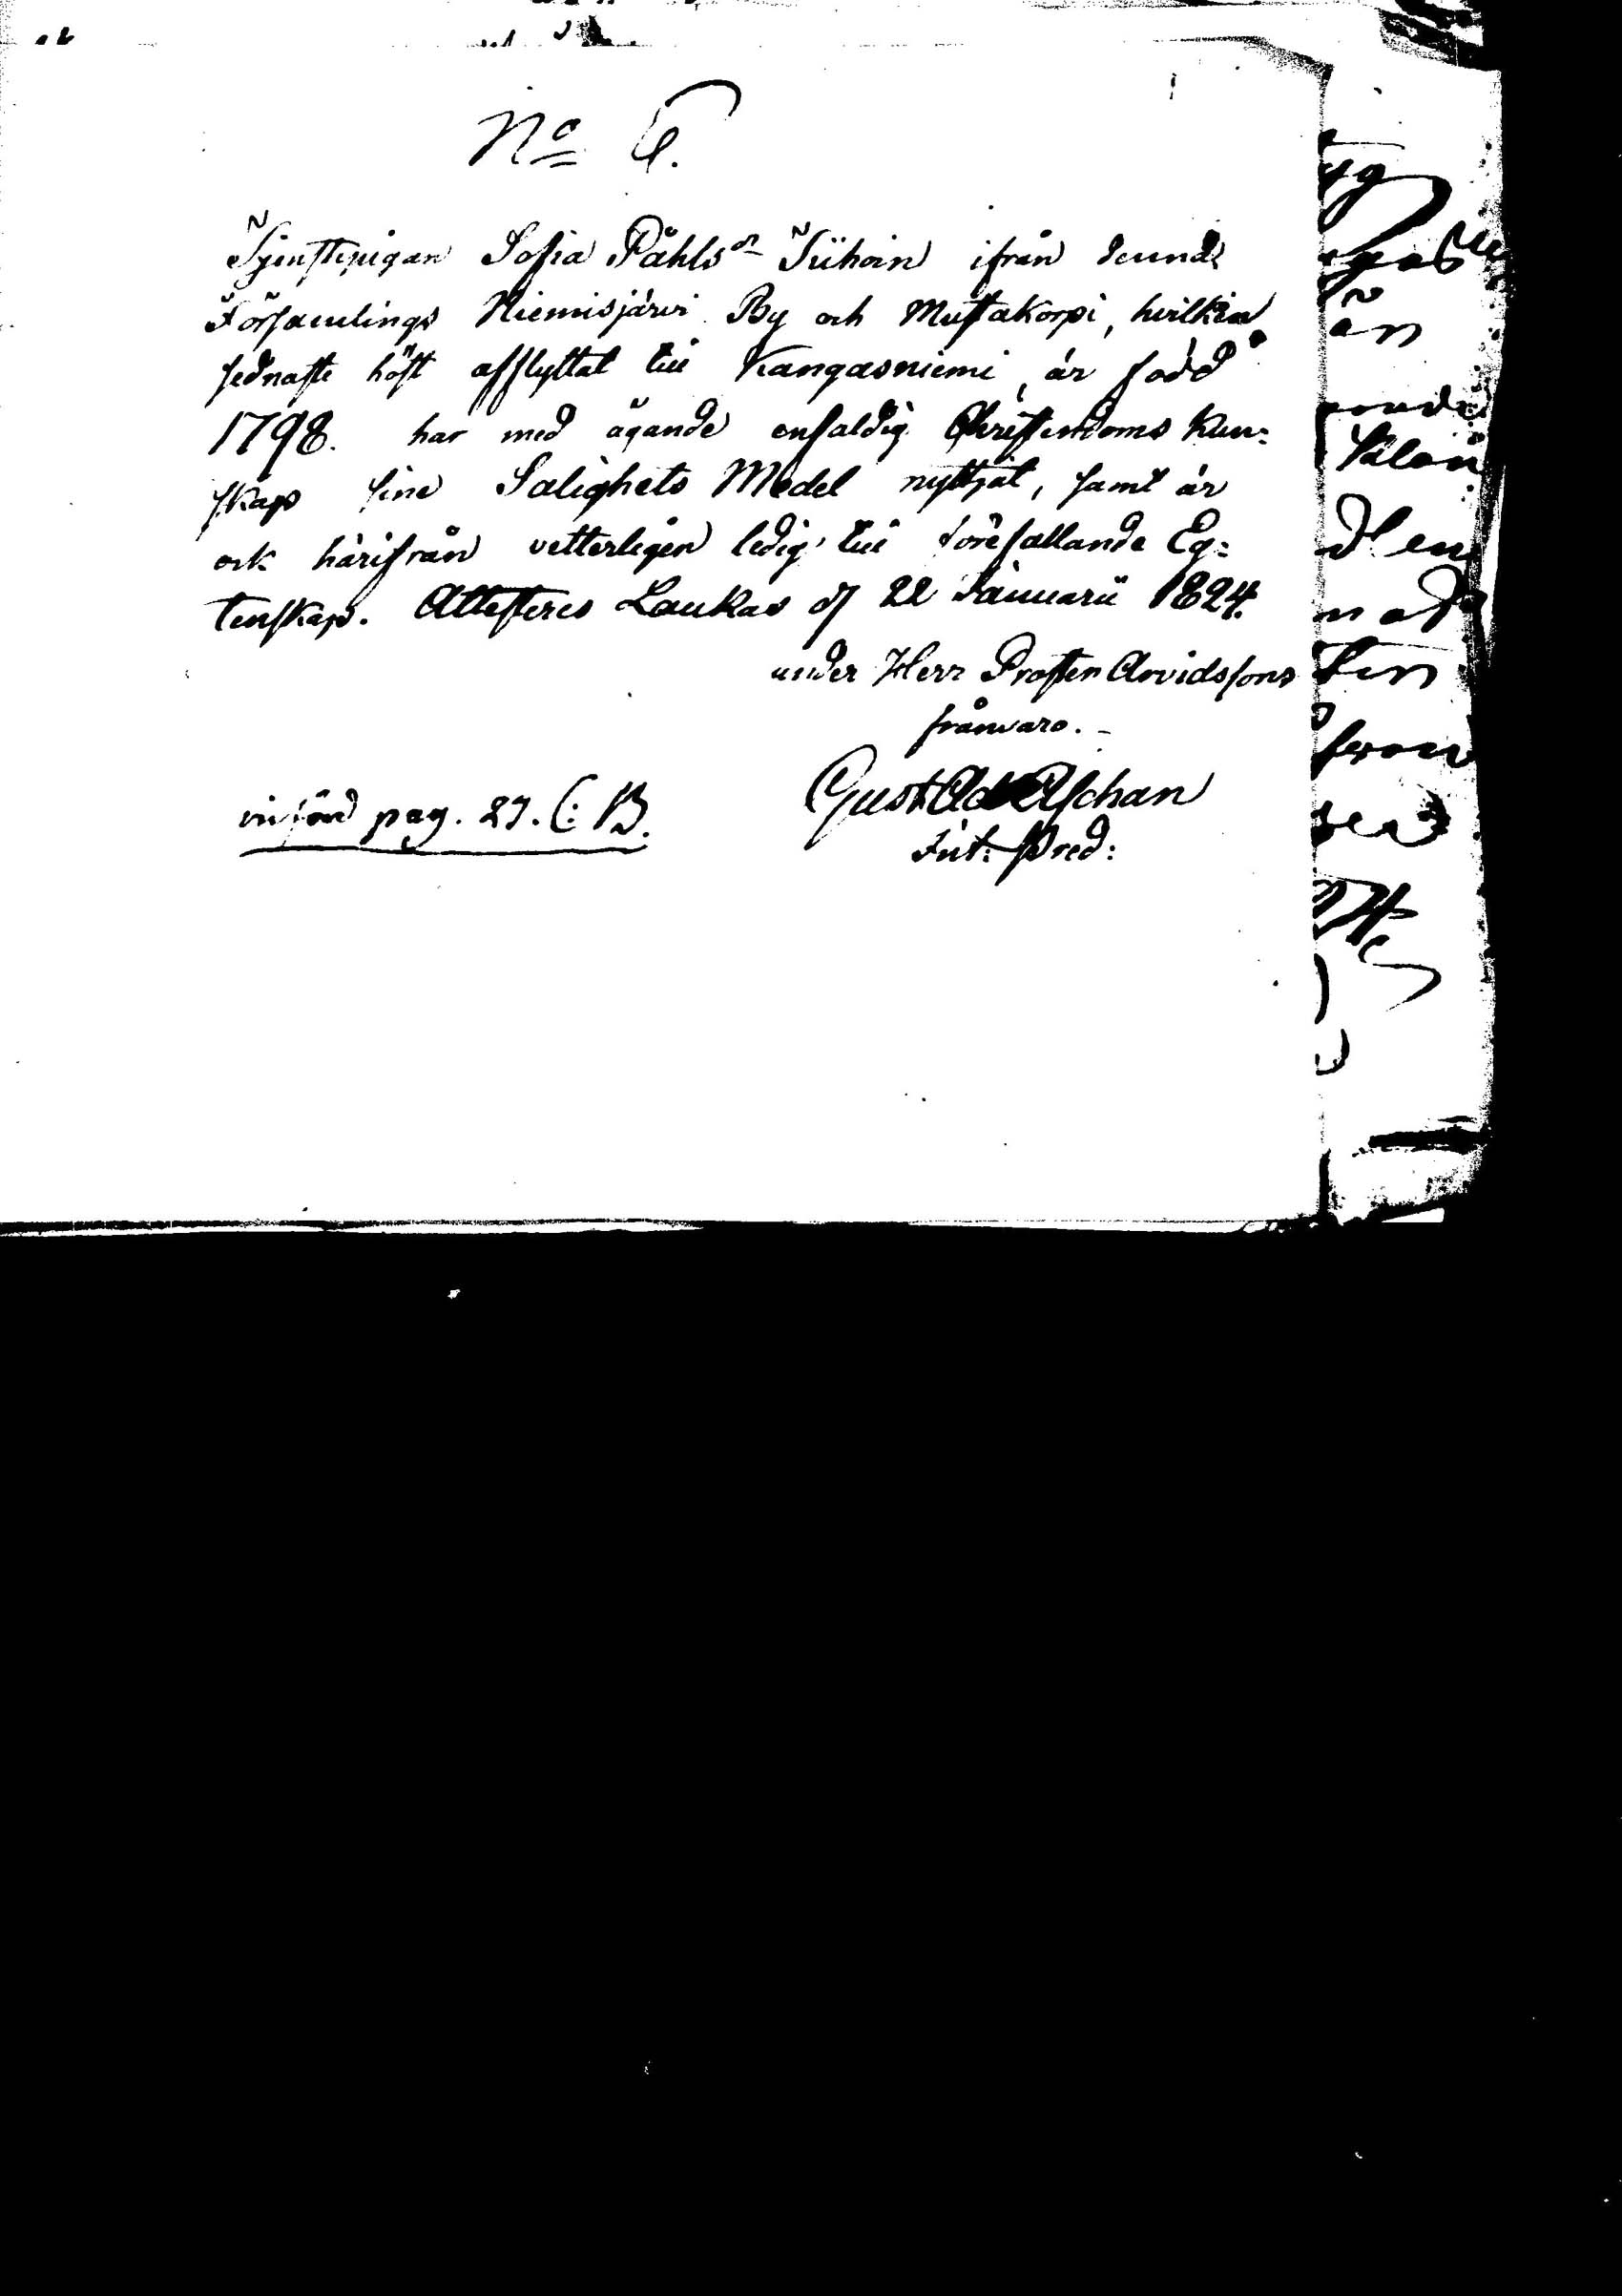 No 6.
Tjenstepigan Sofia Påhlsdr Tiihoin ifrån denna
Församlings Niemisjärvi By och Mustakorpi, hvilken
sednaste höst afflyttat till Kangasniemi, är född
1798. har med ägande enfaldig Christendoms Kun-
skap sine Salighets Medel nyttjat, samt är
ock härifrån vetterligen ledig till förefallande Eg-
tenskap. Attesteres Laukas d 22 Januarii 1824.
under Herr Prosten Arvidssons
frånvaro.
Gust Ad Aschan
Inf. pag. 27. C. B.
Pred: